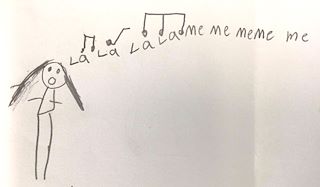 La La La La me me meme me